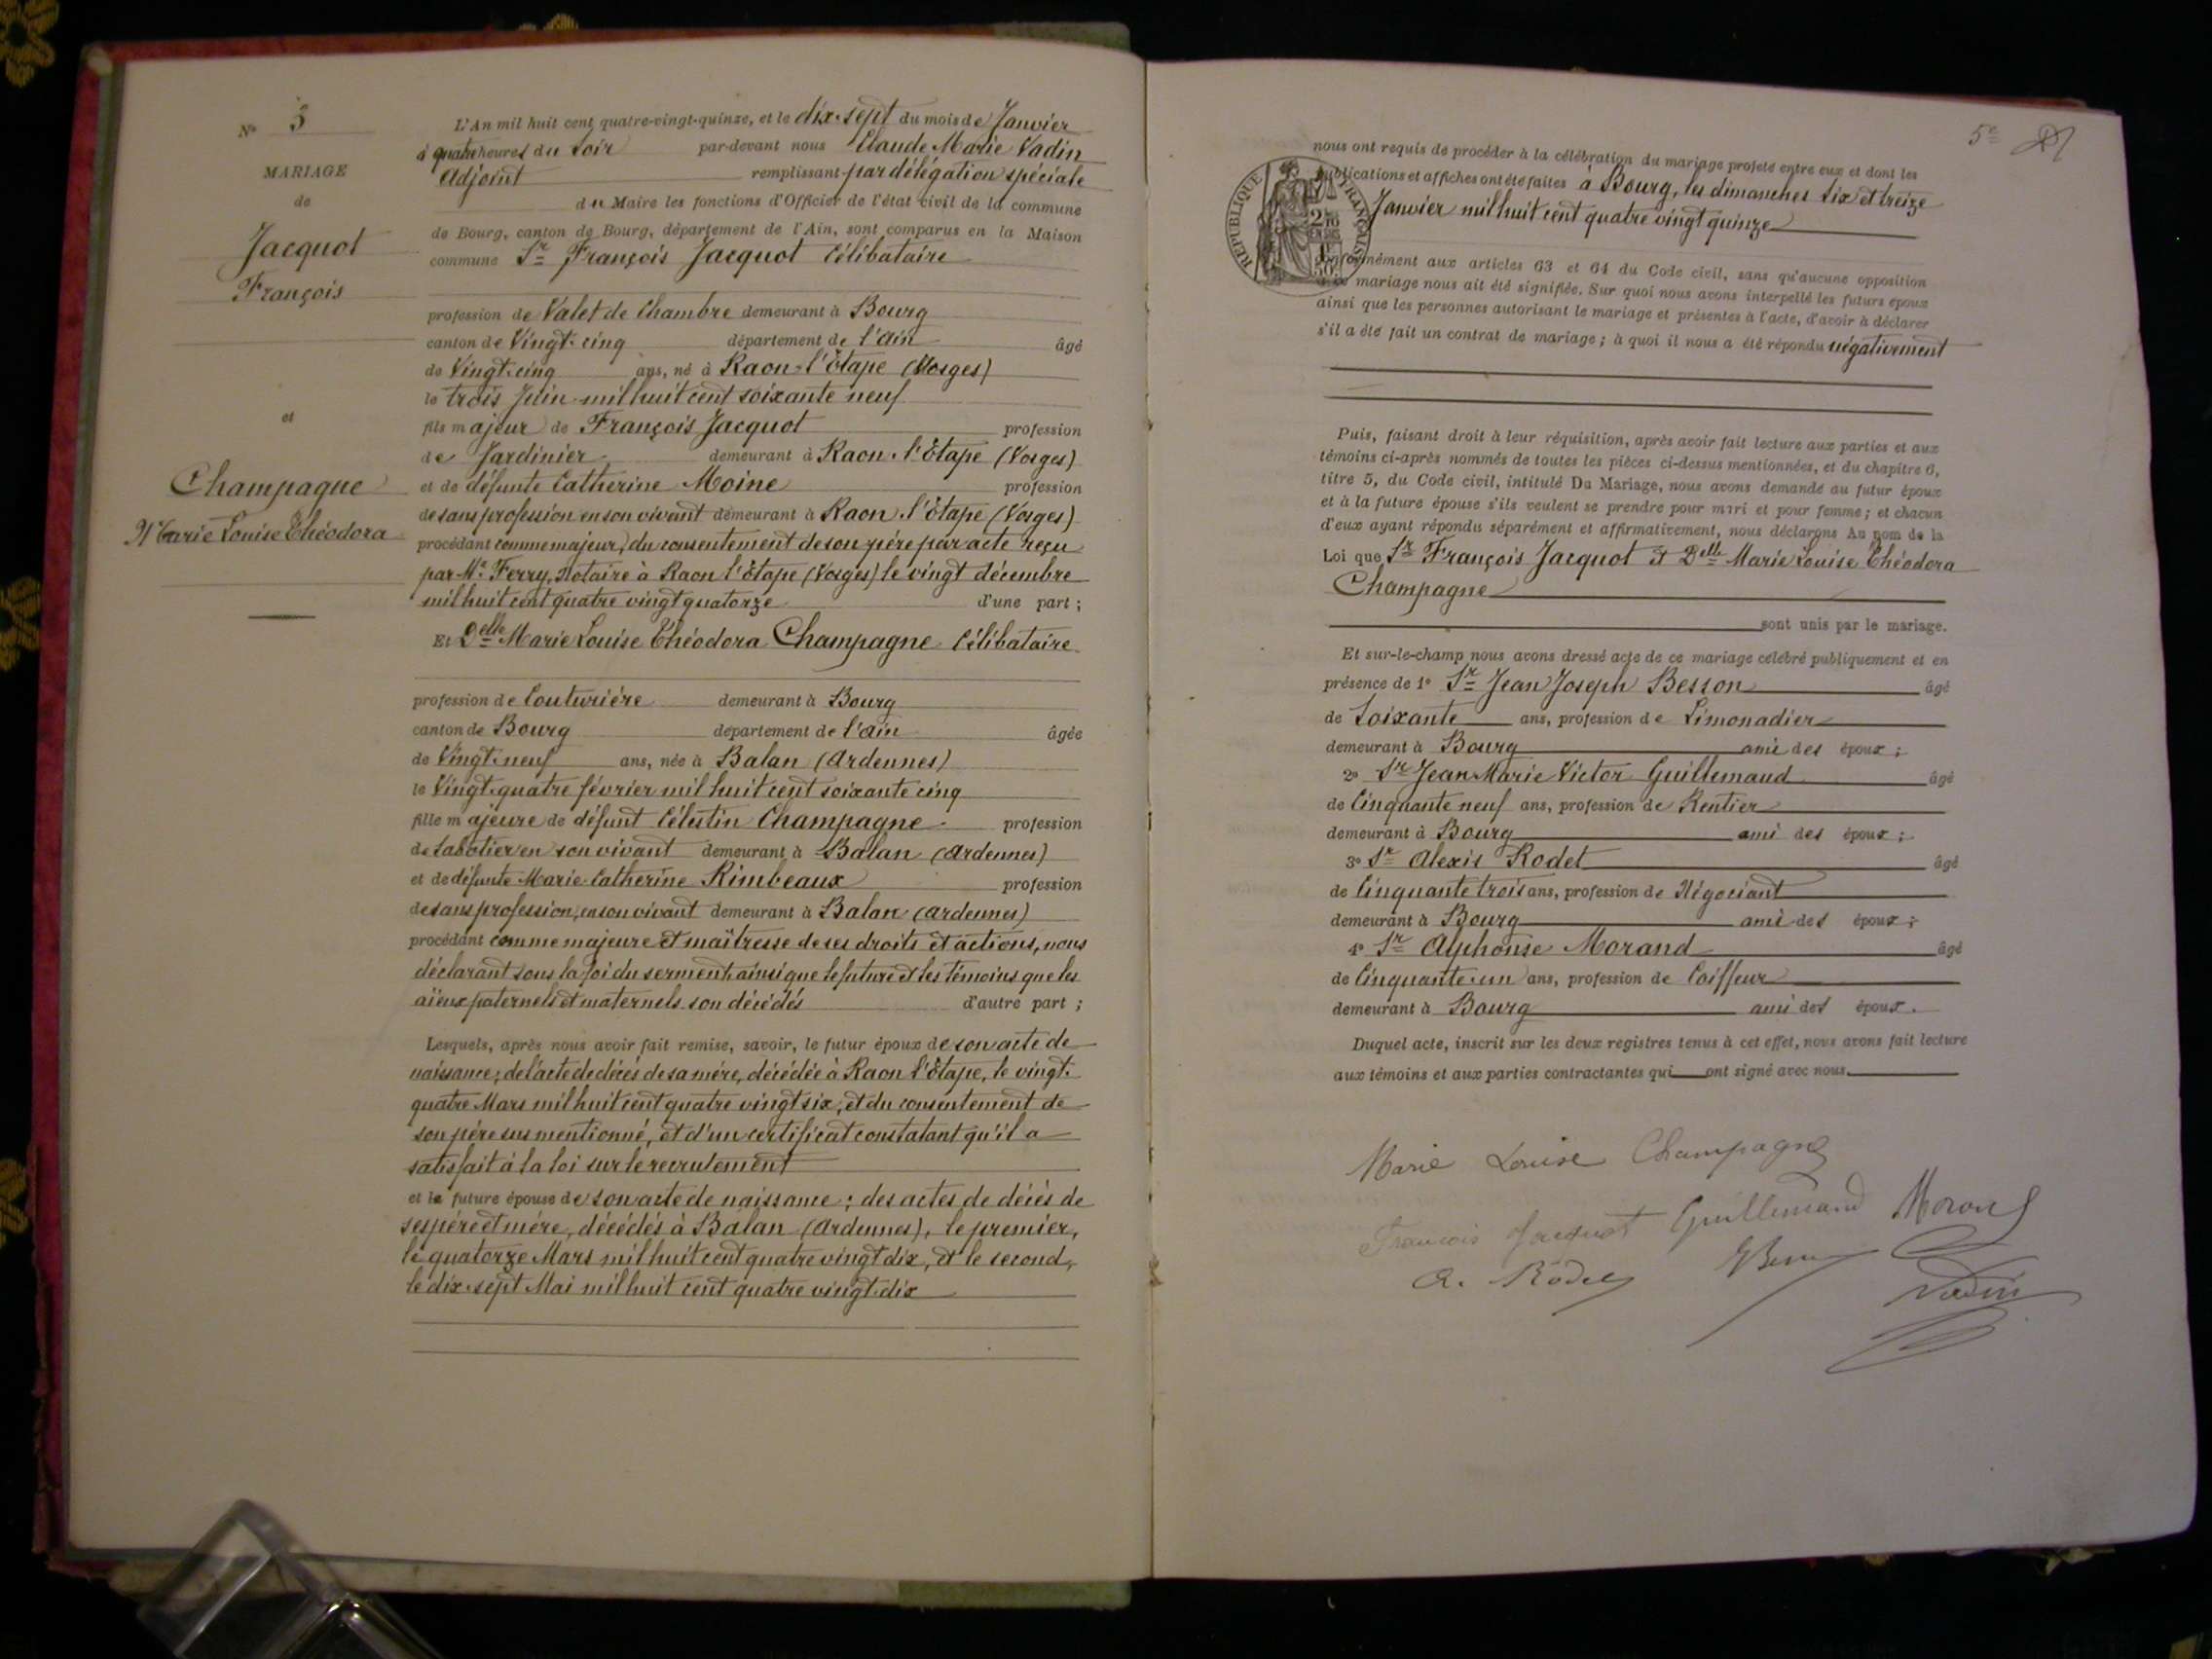 N° 3
MARIAGE
de
Jacquot
François
et
Champagne
Marie Louise Théodora
L'An mil huit cent quatre-vingt-quinze, et le dix-sept du mois de Janvier
à quatre heures du soir par-devant nous Claude Marie Vadin
Adjoint remplissant par délégation spéciale
du Maire les fonctions d'Officier de l'état civil de la commune
de Bourg, canton de Bourg, département de l'Ain, sont comparus en la Maison
commune Sr François Jacquot Célibataire
profession de Valet de Chambre demeurant à Bourg
canton de Vingt-cinq département de l'Ain âgé
de Vingt-cinq ans, né à Raon-l'Étape (Vosges)
le trois Juin mil huit cent soixante neuf
fils majeur de François Jacquot profession
de Jardinier demeurant à Raon-l'Étape (Vosges)
et de défunte Catherine Moine profession
de sans profession en son vivant demeurant à Raon-l'Étape (Vosges)
procédant comme majeur, du consentement de son père par acte reçu
par Me Ferry, Notaire à Raon l'Étape (Vosges) le vingt décembre
mil huit cent quatre vingt quatorze d'une part ;
Et Delle Marie Louise Théodora Champagne Célibataire
profession de Couturière demeurant à Bourg
canton de Bourg département de l'Ain âgée
de Vingt-neuf ans, née à Balan (Ardennes)
le Vingt-quatre février mil huit cent soixante cinq
fille majeure de défunt Célestin Champagne profession
de Sabotier en son vivant demeurant à Balan (Ardennes)
et de défunte Marie Catherine Rimbeaux profession
de sans profession, en son vivant demeurant à Balan (Ardennes)
procédant comme majeure et maîtresse de ses droits et actions, nous
déclarant sous la foi du serment ainsi que le future et les témoins que les
aïeux paternels et maternels son décédés d'autre part ;
Lesquels, après nous avoir fait remise, savoir, le futur époux de son acte de
naissance ; de l'acte de décès de sa mère, décédée à Raon l'Étape, le vingt-
quatre Mars mil huit cent quatre vingt six, et du consentement de
son père sus mentionné, et d'un certificat constatant qu'il a
satisfait à la loi sur le recrutement
et la future épouse de son acte de naissance ; des actes de décès de
ses père et mère, décédés à Balan (Ardennes), le premier,
le quatorze Mars mil huit cent quatre vingt dix, et le second,
le dix-sept Mai mil huit cent quatre vingt-dix
5e
nous ont requis de procéder à la célébration du mariage projeté entre eux et dont les
publications et affiches ont été faites à Bourg, les dimanches six et treize
Janvier mil huit cent quatre vingt quinze
RÉPUBLIQUE FRANÇAISE
conformément aux articles 63 et 64 du Code civil, sans qu'aucune opposition
à ce mariage nous ait été signifiée. Sur quoi nous avons interpellé les futurs époux
ainsi que les personnes autorisant le mariage et présentes à l'acte, d'avoir à déclarer
s'il a été fait un contrat de mariage ; à quoi il nous a été répondu négativement
Puis, faisant droit à leur réquisition, après avoir fait lecture aux parties et aux
témoins ci-après nommés de toutes les pièces ci-dessus mentionnées, et du chapitre 6,
titre 5, du Code civil, intitulé Du Mariage, nous avons demandé au futur époux
et à la future épouse s'ils veulent se prendre pour mari et pour femme ; et chacun
d'eux ayant répondu séparément et affirmativement, nous déclarons Au nom de la
Loi que Sr François Jacquot et Delle Marie Louise Théodora
Champagne
sont unis par le mariage.
Et sur-le-champ nous avons dressé acte de ce mariage célébré publiquement et en
présence de 1° Sr Jean Joseph Besson âgé
de Soixante ans, profession de Limonadier
demeurant à Bourg ami des époux ;
2° Sr Jean Marie Victor Guillemaud âgé
de Cinquante neuf ans, profession de Rentier
demeurant à Bourg ami des époux ;
3° Sr Alexis Rodet âgé
de Cinquante trois ans, profession de Négociant
demeurant à Bourg ami des époux ;
4° Sr Alphonse Morand âgé
de Cinquante-un ans, profession de Coiffeur
demeurant à Bourg ami des époux.
Duquel acte, inscrit sur les deux registres tenus à cet effet, nous avons fait lecture
aux témoins et aux parties contractantes qui ont signé avec nous.
Marie Louise Champagne
François Jacquot Guillemaud Morand
A. Rodet
Vadin